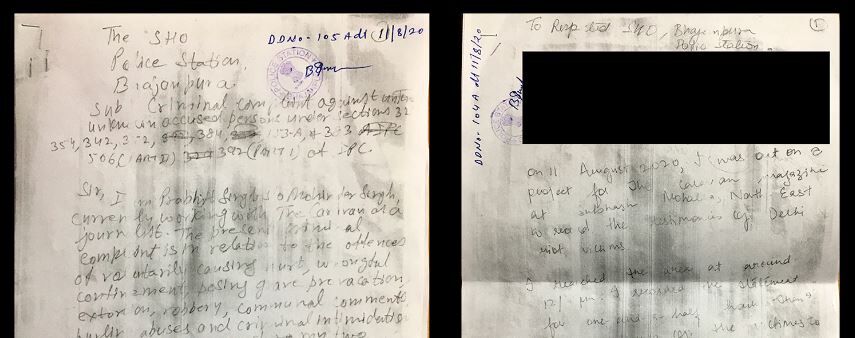 The SHO
DDNO- 105 A dt 11/8/20
Police Station,
Brajanpura
Sub Criminal complaint against
unknown accused persons under sections 32
354, 342, 384, 153-A, 323
506 (PART II) 392 (PART I) of IPC.
Sir, I am Prabhjit Singh s/o
currently working with The Caravan as a
journalist. The present criminal
complaint is in relation to the offences
of voluntarily causing hurt, wrongful
confinement, posing grave provocation,
extortion, robbery, communal comments
abuses and criminal intimidation
my two
To Respected SHO, Bhajanpura
Police Station.
(1)
DDNO- 104 A dt 11/8/20
on 11 August 2020, I was out on a
project for The Caravan magazine
at Subhash Mohalla, North East
to record the testimonies of Delhi
riot victims
I reached the area at around
12/ pm. I recorded the statement
for one and a half hour
the victims to